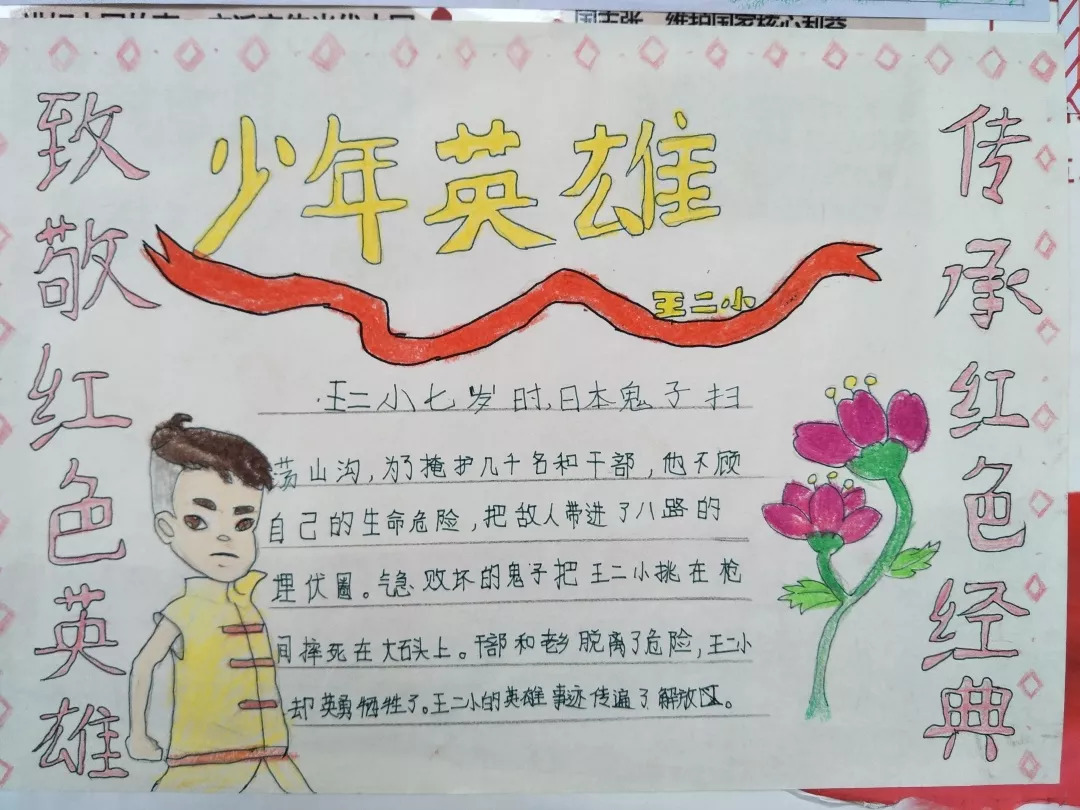 少年英雄
王二小
致敬红色英雄
传承红色经典
王二小七岁时,日本鬼子扫
荡山沟,为了掩护几千名和干部,他不顾
自己的生命危险,把敌人带进了八路的
埋伏圈。气急败坏的鬼子把王二小挑在枪
间摔死在大石头上。干部和老乡脱离了危险,王二小
却英勇牺牲了。王二小的英雄事迹传遍了解放区。